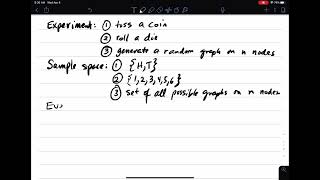 Experiment: ① toss a coin
② roll a die
③ generate a random graph on n nodes
Sample space: ① {H,T}
② {1,2,3,4,5,6}
③ set of all possible graphs on n nodes
Ev